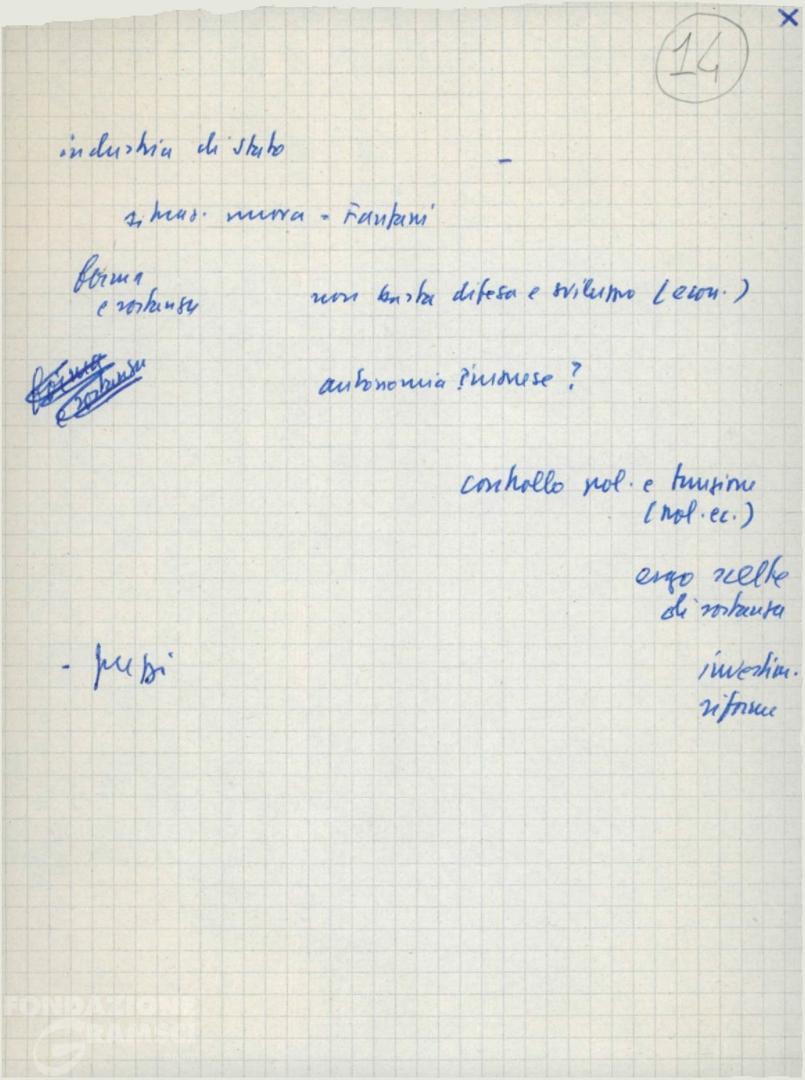 14
industria di stato -
situaz. nuova - Fanfani
forma
e sostanza
non basta difesa e sviluppo (econ.)
forma
e sostanza
autonomia imprese?
controllo pol. e funzione
(pol. ec.)
ergo scelte
di sostanza
- prezzi
investim.
riforme
FONDAZIONE
GRAMSCI